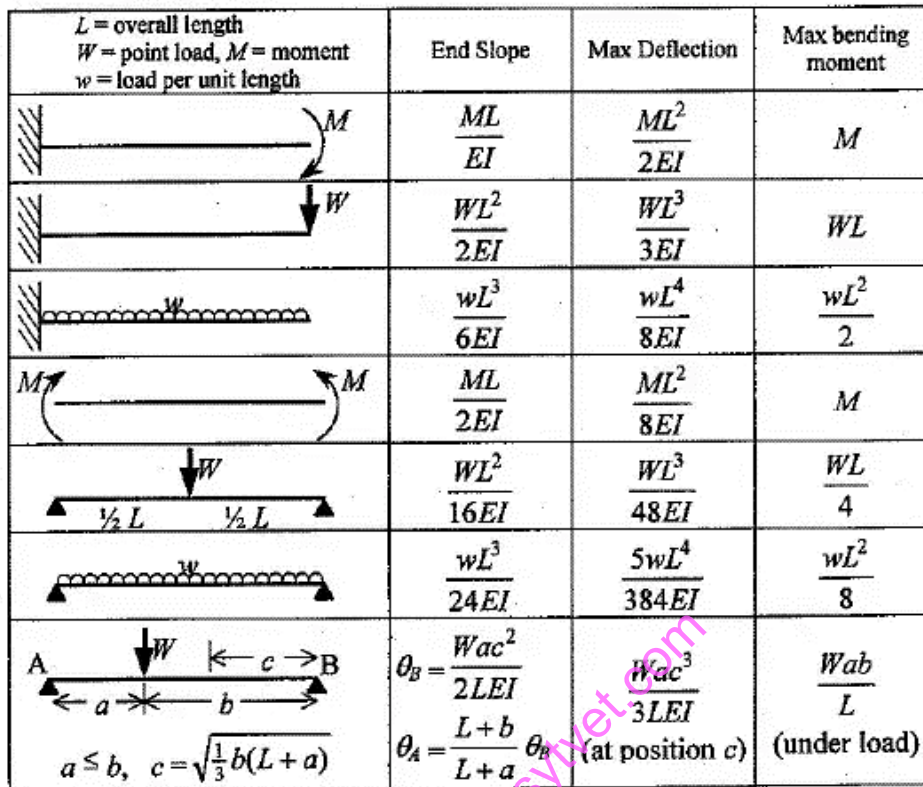 L = overall length
W = point load, M = moment
w = load per unit length
End Slope
Max Deflection
Max bending moment
M
ML/EI
ML²/2EI
M
W
WL²/2EI
WL³/3EI
WL
w
wL³/6EI
wL⁴/8EI
wL²/2
M M
ML/2EI
ML²/8EI
M
W
½ L ½ L
WL²/16EI
WL³/48EI
WL/4
w
wL³/24EI
5wL⁴/384EI
wL²/8
A W c B
a b
a ≤ b, c = √(⅓ b(L + a))
θ_B = Wac²/2LEI
θ_A = (L + b)/(L + a) θ_B
Wac³/3LEI
(at position c)
Wab/L
(under load)
sytvet.com